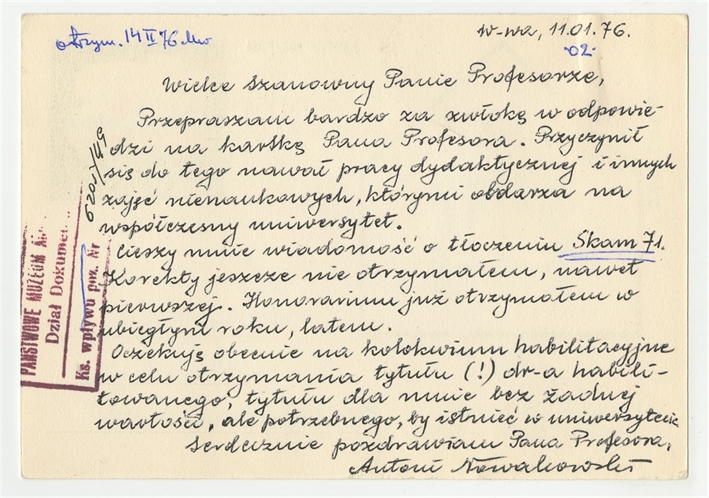 otrzym. 14 II 76
W-wa, 11.01.76.
02
Wielce Szanowny Panie Profesorze,
Przepraszam bardzo za zwłokę w odpowie-
dzi na kartkę Pana Profesora. Przyczynił
się do tego nawał pracy dydaktycznej i innych
zajęć nienaukowych, którymi obdarza na
współczesny uniwersytet.
Cieszy mnie wiadomość o tłoczeniu Skam 71.
Korekty jeszcze nie otrzymałem, nawet
pierwszej. Honorarium już otrzymałem w
ubiegłym roku, latem.
Oczekuję obecnie na kolokwium habilitacyjne
w celu otrzymania tytułu (!) dr-a habili-
towanego, tytułu dla mnie bez żadnej
wartości, ale potrzebnego, by istnieć w uniwersytecie
Serdecznie pozdrawiam Pana Profesora,
Antoni Nowakowski
PAŃSTWOWE MUZEUM
Dział Dokumen
Ks. wpływu poz. Nr